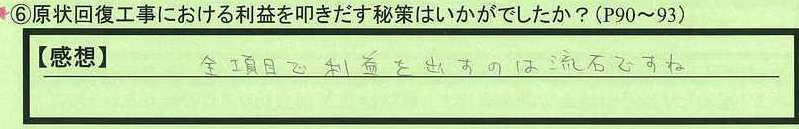 ⑥原状回復工事における利益を叩きだす秘策はいかがでしたか？(P90～93)
【感想】 全項目で利益を出すのは流石ですね